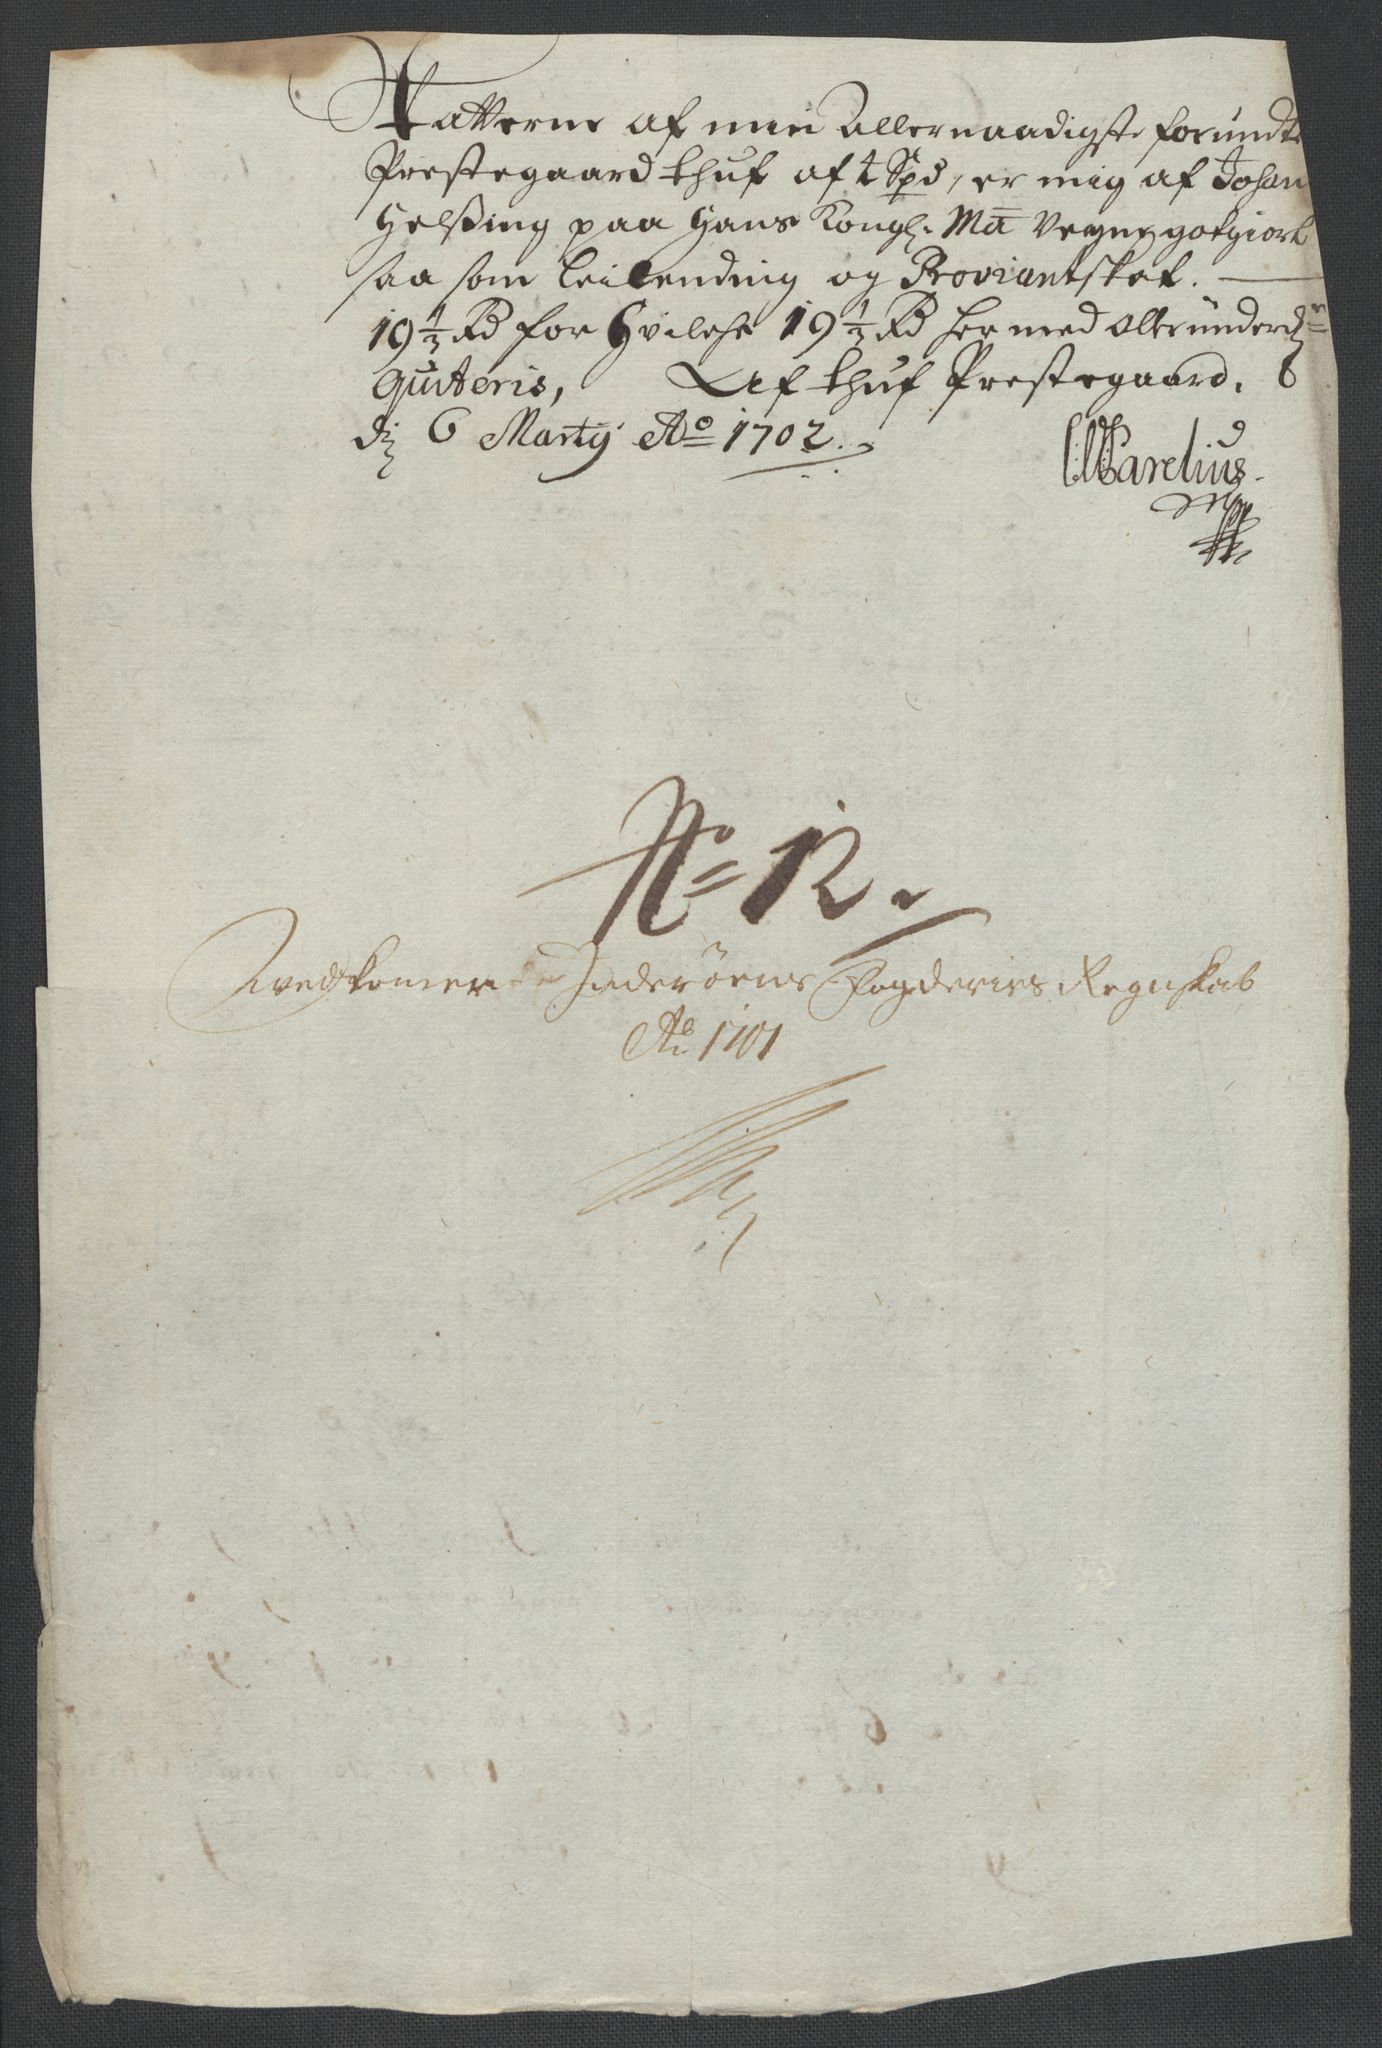 Skatterne af min Allernaadigste forundte
Prestegaard thuf af 4 Spd, er mig af Johan
Helsing paa Hans Kongl. Ma Vegne gotgiort
saa som Leilending og Proviantskat.
19½ Rd for hvilche 19½ Rd hermed allerunderd:
quiteris, Af thuf Prestegaard.
d. 6 Marty Ao 1702.
Parelius
No 12.
Vedkomende Inderöens Fogderies Regnskab
Ao 1701